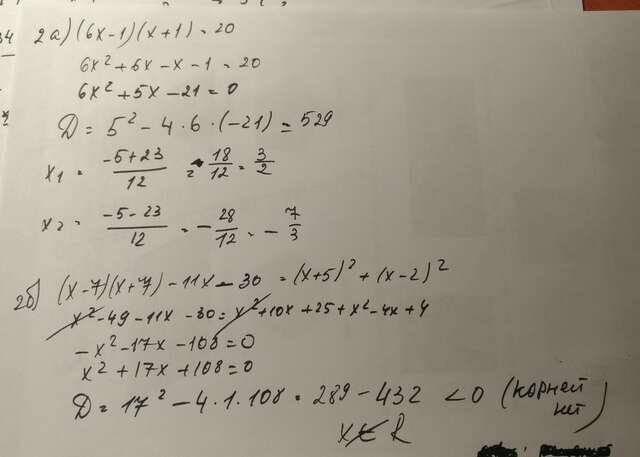 34
2а) (6x-1)(x+1) = 20
6x² + 6x - x - 1 = 20
6x² + 5x - 21 = 0
D = 5² - 4 · 6 · (-21) = 529
x₁ = \frac{-5+23}{12} = \frac{18}{12} = \frac{3}{2}
x₂ = \frac{-5-23}{12} = -\frac{28}{12} = -\frac{7}{3}
2б) (x-7)(x+7) - 11x - 30 = (x+5)² + (x-2)²
x² - 49 - 11x - 30 = x² + 10x + 25 + x² - 4x + 4
-x² - 17x - 108 = 0
x² + 17x + 108 = 0
D = 17² - 4 · 1 · 108 = 289 - 432 < 0 (корней
нет)
x ∉ R